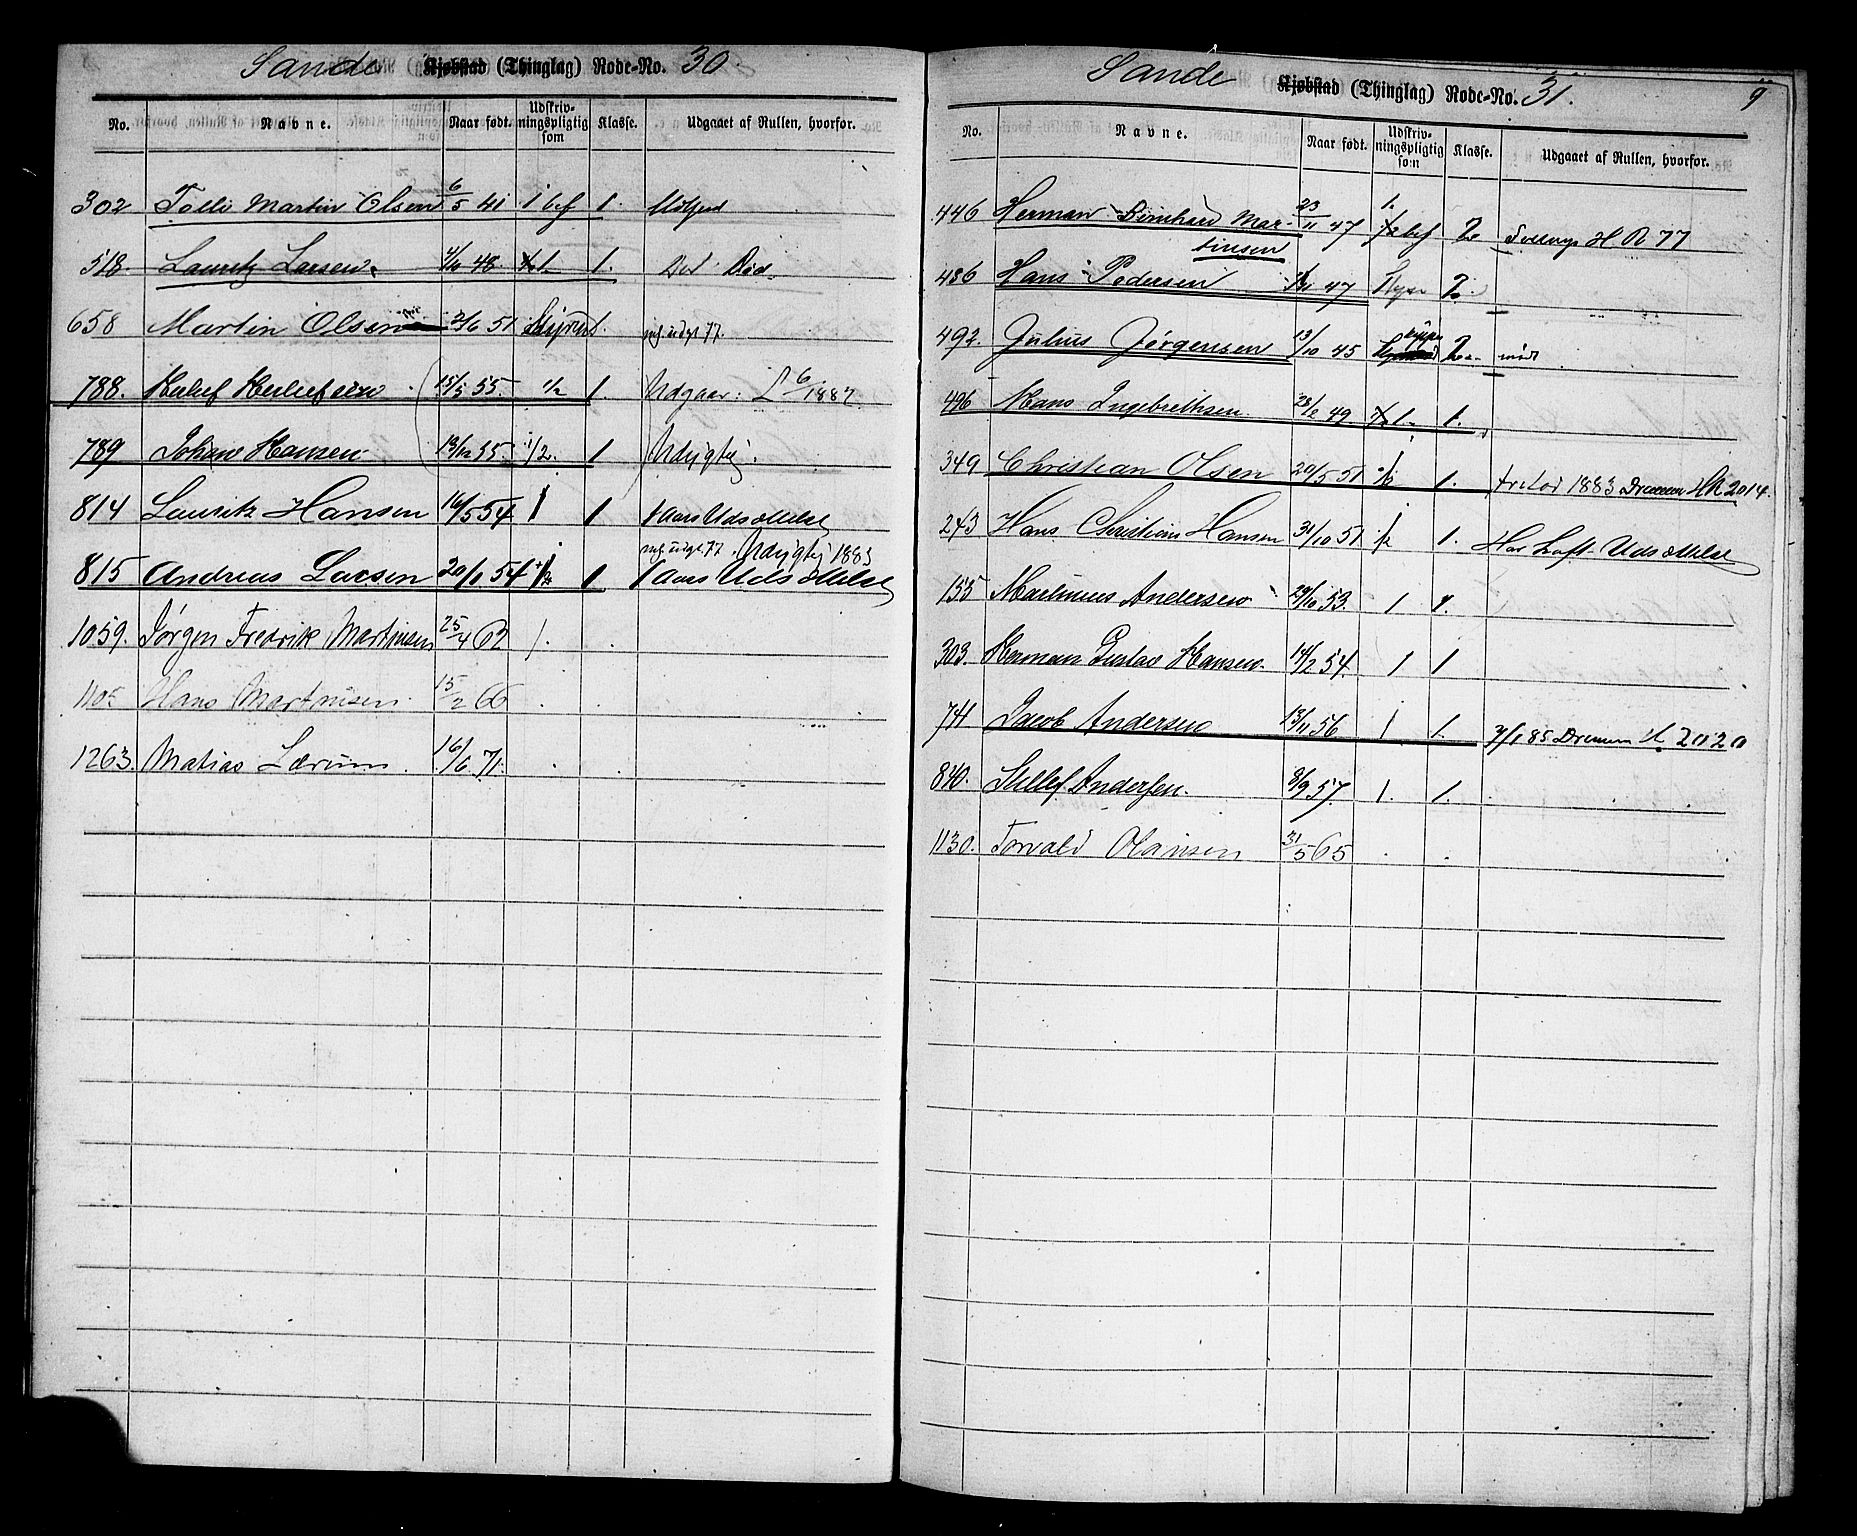 Sande Kjøbstad (Thinglag) Rode-No. 30.
No. Navne. Naar født. Udskrivningspligtig som Klasse. Udgaaet af Rullen, hvorfor.
302 Martin Olsen 6/5 41 1 bef 1.
518. Lauritz Larsen. 48 1. 1. Død
658 Martin Olsen 2/6 51 1. udgt. 77.
788. 15/5 55. 1/2 1. Udgaar: 6/1882
789 Johan Hansen 13/12 55 1/2. 1 Udygtig.
814 Lauritz Hansen 16/5 54 1 1 1 Aars Udsættelse
udgt. 77. Udygtig 1883
815 Andreas Larsen 20/1 54 1/2 1 1 Aars Udsættelse
1059. Jørgen Fredrik Martinsen 25/4 62 1.
1105 Hans Martinisen. 15/2 66
1263. Matias Lærum 16/6 71.
Sande Kjøbstad (Thinglag) Rode-No. 31. 9
No. Navne. Naar født. Udskrivningspligtig som Klasse. Udgaaet af Rullen, hvorfor.
446 Herman Bernhard Mar- 23/11 47 1. 1/2 bef H R 77
tinsen
486 Hans Pedersen 47
492. Julius Jørgensen 13/10 45 mødt
496 Hans Ingebrethsen. 28/2 49. 1. 1.
349 Christian Olsen 20/5 51 1/2 1. 1883 Drammen HR 2014.
243 Hans Christian Hansen 31/10 51 1/2 1. Har havt Udsættelse
155 Martinius Andersen 29/10 53. 1 1.
303. Herman Gustav Hansen. 14/2 54. 1 1
741 Jacob Andersen 13/11 56 1 1. 85 Drammen H. 2020
840. Andersen. 8/9 57. 1. 1.
1130. Torvald Olausen 31/5 65